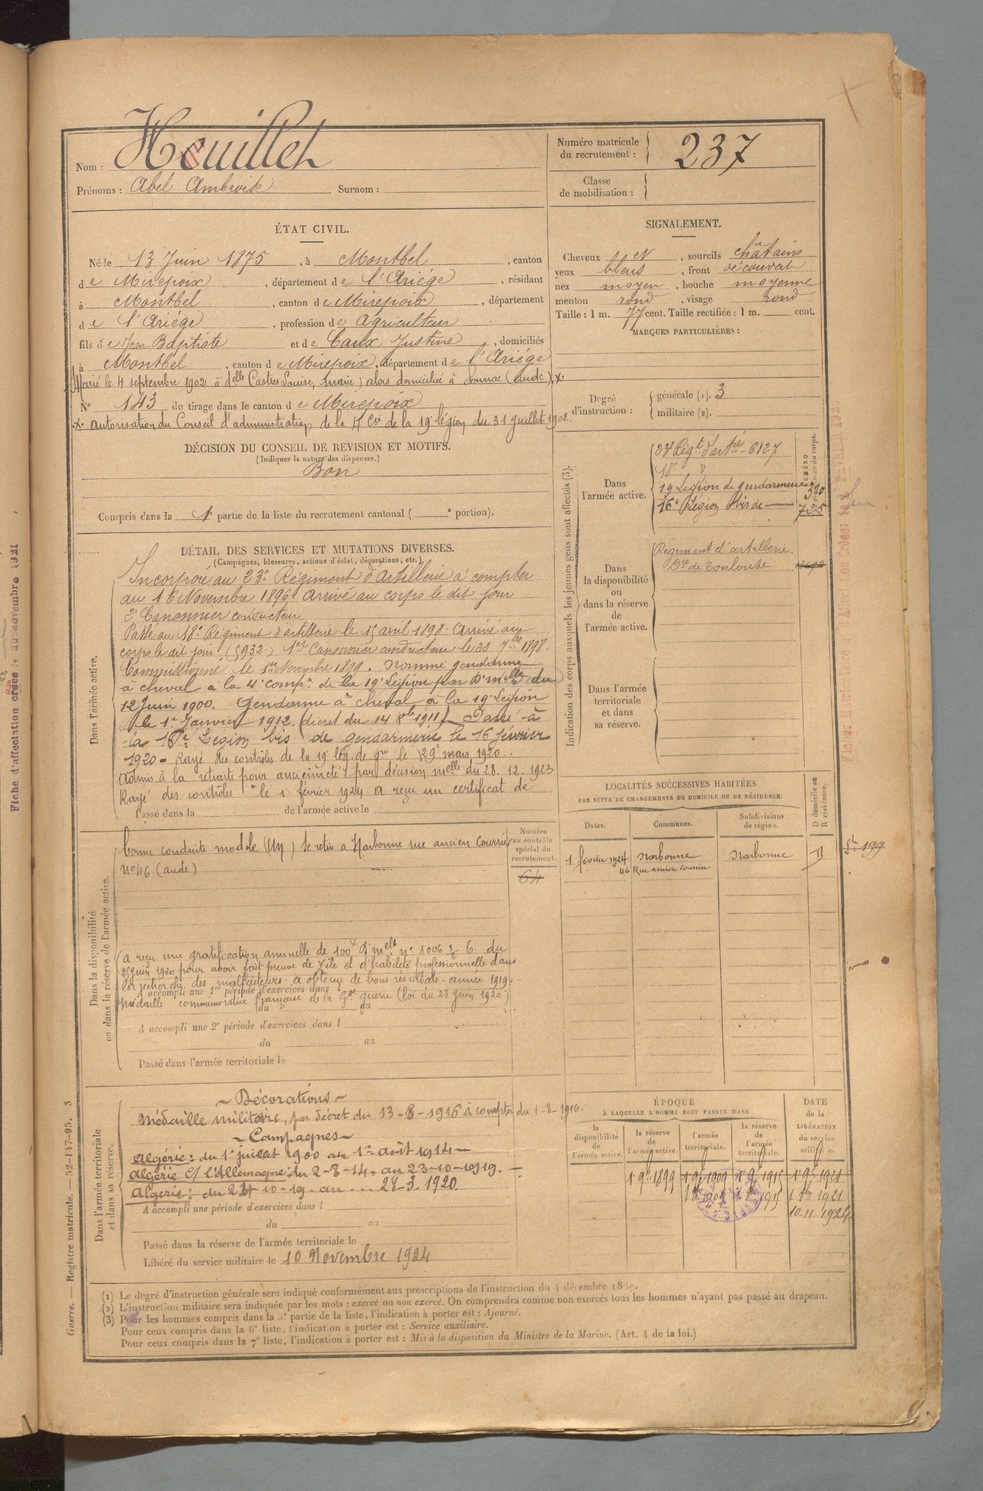 Nom : Heuillet
Prénoms : Abel Ambroise Surnom :
Numéro matricule du recrutement : 237
Classe de mobilisation :
ÉTAT CIVIL.
Né le 13 Juin 1875, à Montbel, canton
de Mirepoix, département de l'Ariége, résidant
à Montbel, canton de Mirepoix, département
de l'Ariége, profession de agriculteur
fils de Jean Baptiste et de Caux Justine, domiciliés
à Montbel, canton de Mirepoix, département de l'Ariége
Marié le 4 septembre 1902 à delle Castres Louise, Marie) alors domiciliée à Sonnac (Aude) x.
N° 143 de tirage dans le canton de Mirepoix
x. autorisation du Conseil d'administration de la Cie de la 19e légion du 31 juillet 1902.
SIGNALEMENT.
Cheveux et, sourcils châtains
yeux bleus, front découvert
nez moyen, bouche moyenne
menton rond, visage rond
Taille : 1 m. 77 cent. Taille rectifiée : 1 m. cent.
MARQUES PARTICULIÈRES :
Degré d'instruction : générale (1). 3
militaire (2).
DÉCISION DU CONSEIL DE REVISION ET MOTIFS.
(Indiquer la nature des dispenses.)
Bon
Compris dans la 1e partie de la liste du recrutement cantonal ( e portion).
Indication des corps auxquels les jeunes gens sont affectés (3).
NUMÉRO
Dans l'armée active.
23e Régt d'artie 6127
18e d°
19e Légion de gendarmerie 310
16e Légion bis de — 735
Dans la disponibilité ou dans la réserve de l'armée active.
Régiment d'artillerie
Don de Toulouse
Dans l'armée territoriale et dans sa réserve.
DÉTAIL DES SERVICES ET MUTATIONS DIVERSES.
(Campagnes, blessures, actions d'éclat, décorations, etc.)
Dans l'armée active.
Incorporé au 23e Régiment d'Artillerie à compter
du 16 Novembre 1896 Arrivé au corps le dit jour
2e Canonnier conducteur
Passé au 18e Régiment d'artillerie le 15 avril 1898. Arrivé au
corps le dit jour (5932) 1er Canonnier conducteur le 23 7bre 1898.
Commissionné le 1er Novembre 1899. Nommé gendarme
à cheval à la 4e compie de la 19e Légion par Don mlle du
12 Juin 1900. Gendarme à cheval à la 19e Légion
le 1er Janvier 1912. (décret du 14 8bre 1911) Passé à
la 16e Légion bis de gendarmerie le 16 février
1920 - Rayé des contrôles de la 19e lég. de gie le 29 mars 1920.
Admis à la retraite pour ancienneté par décision mlle du 28.12.1923
Rayé des contrôles le 1er février 1924 a reçu un certificat de
Passé dans la de l'armée active le
Dans la disponibilité ou dans la réserve de l'armée active.
Numéro au contrôle spécial du recrutement.
64
bonne conduite modèle (Un) Se retire à Narbonne rue ancien Courrier
n° 46 (aude)
(a reçu une gratification annuelle de 100f Don melle n° 1006 2/6 du
25 juin 1920 pour avoir fait preuve de zèle et d'habileté professionnelle dans
les recherches des malfaiteurs a obtenu de bons résultats. année 1919.
A accompli une 1re période d'exercices dans l
Médaille commémorative française de la Gde guerre (loi du 23 Juin 1920)
du au
A accompli une 2e période d'exercices dans l
du au
Passé dans l'armée territoriale le
LOCALITÉS SUCCESSIVES HABITÉES
PAR SUITE DE CHANGEMENTS DE DOMICILE OU DE RÉSIDENCE.
D domicile ou R résidence.
Dates. Communes. Subdivisions de région.
1 février 1924 Narbonne Narbonne
46 Rue ancien Courrier
Dans l'armée territoriale et dans sa réserve.
~ Décorations ~
Médaille militaire, par décret du 13-8-1916 à compter du 1-2-1916.
~ Campagnes ~
Algérie : du 1er juillet 1900 au 1er août 1914 —
Algérie C/ l'Allemagne du 2-8-14 au 23-10-1919. —
Algérie : du 24-10-19. au ... 28-3.1920.
A accompli une période d'exercices dans l
du au
Passé dans la réserve de l'armée territoriale le
Libéré du service militaire le 10 Novembre 1924
ÉPOQUE
À LAQUELLE L'HOMME DOIT PASSER DANS
DATE de la LIBÉRATION du service militaire.
la disponibilité de l'armée active. la réserve de l'armée active. l'armée territoriale. la réserve de l'armée territoriale.
1 9bre 1899 1 9bre 1909 1 9bre 1915 1 9bre 1921
10.11.1924
(1) Le degré d'instruction générale sera indiqué conformément aux prescriptions de l'instruction du 4 décembre 1889.
(2) L'instruction militaire sera indiquée par les mots : exercé ou non exercé. On comprendra comme non exercés tous les hommes n'ayant pas passé au drapeau.
(3) Pour les hommes compris dans la 5e partie de la liste, l'indication à porter est : Ajourné.
Pour ceux compris dans la 6e liste, l'indication à porter est : Service auxiliaire.
Pour ceux compris dans la 7e liste, l'indication à porter est : Mis à la disposition du Ministre de la Marine. (Art. 4 de la loi.)
Guerre. — Registre matricule. — 52-147-95. 3
Fiche d'affectation créée le 30 novembre 1921